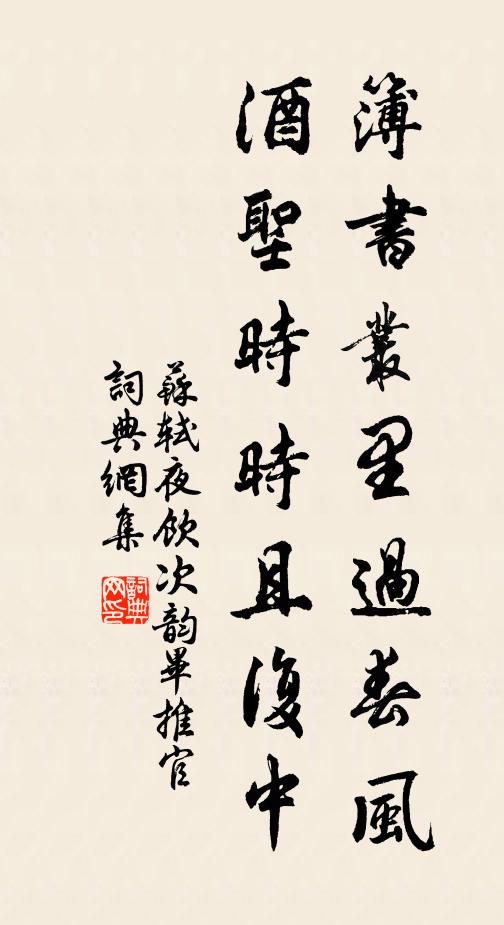 簿書叢里過春風
酒聖時時且復中
蘇軾夜飲次韵畢推官
詞典網集
詞典
网印